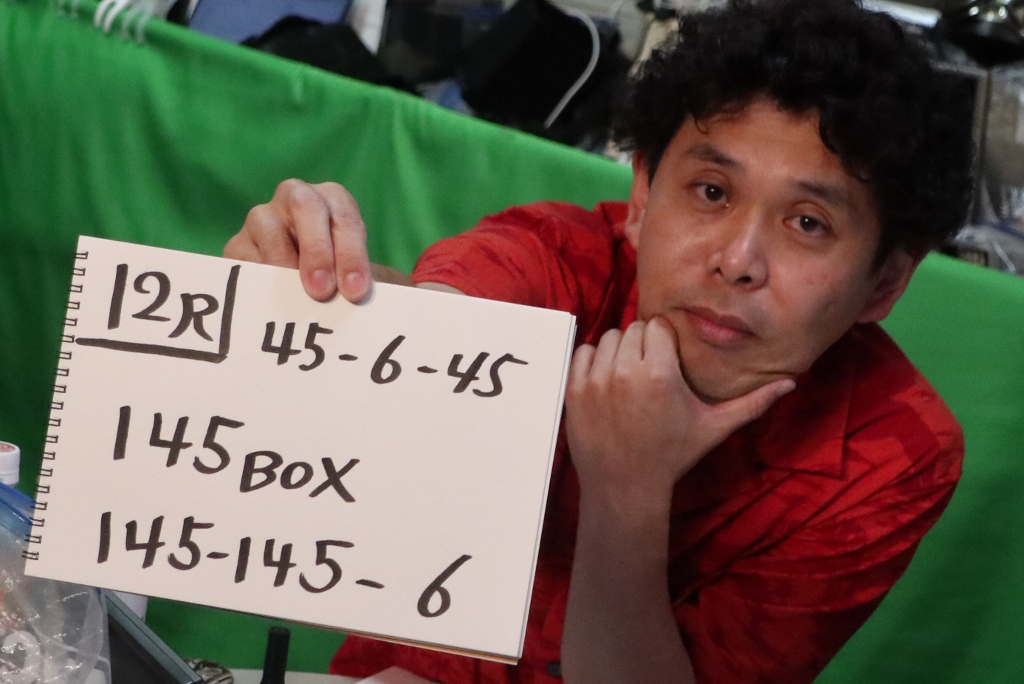 12R 45-6-45
145BOX
145-145-6